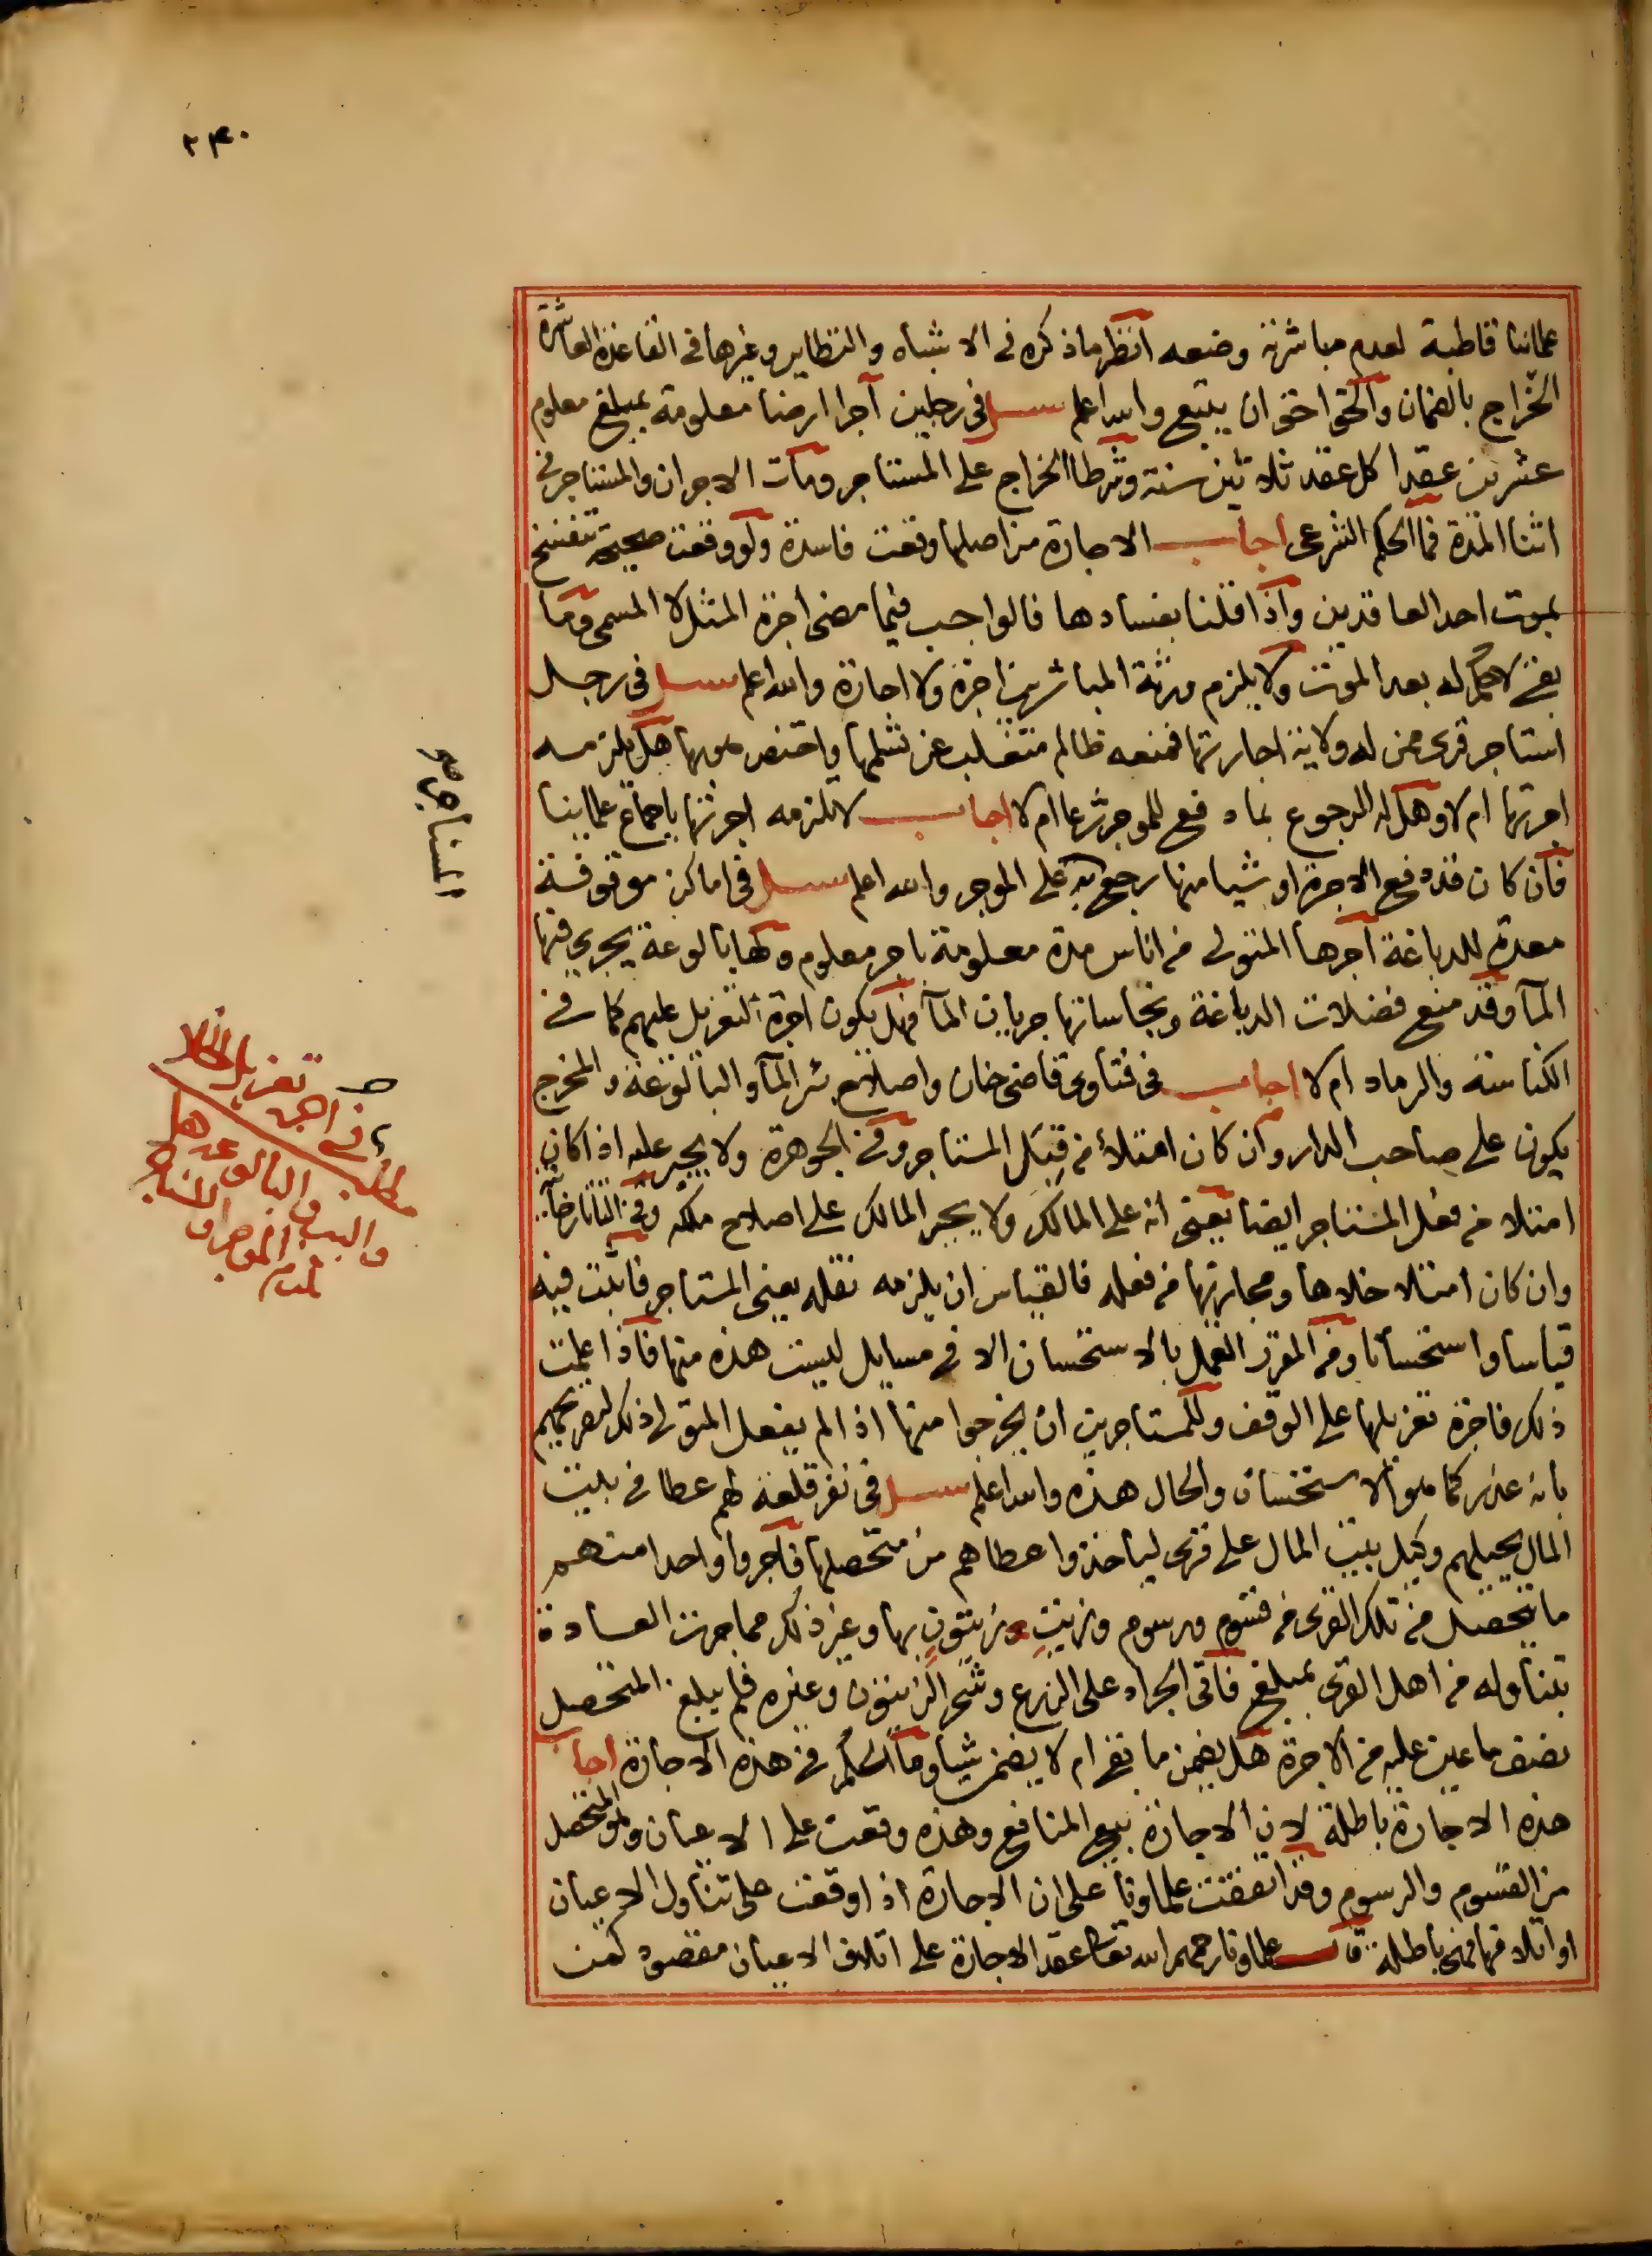 ٢٣٠
علمائنا قاطبة لعدم مباشرته وضعه انظر ما ذكره في الاشباه والنظاير وغيرها في القاعدة العاشرة
الخراج بالضمان والحق احق ان يتبع والله اعلم سئل في رجلين آجرا ارضا معلومة بمبلغ معلوم
عشرين عقدا كل عقد ثلاثين سنة وشرطا الخراج على المستاجر ومات الاجران والمستاجر في
اثنا المدة فما الحكم الشرعي اجاب الاجارة من اصلها وقعت فاسدة ولو وقعت صحيحة تنفسخ
بموت احد العاقدين واذا قلنا بفسادها فالواجب فيما مضى اجرة المثل لا المسمى وما
بقي لا حكم له بعد الموت ولا يلزم ورثة المباشرين اجرة ولا اجارة والله اعلم سئل في رجل
استاجر قرى ممن له ولاية اجارتها فمنعه ظالم متغلب عن تسلمها واختص بها هل يلزمه
اجرتها ام لا وهل له الرجوع بما دفع للموجر شرعا ام لا اجاب لا تلزمه اجرتها باجماع علماينا
فان كان قد دفع الاجرة او شيا منها رجع به على الموجر والله اعلم سئل في اماكن موقوفة
معدة للدباغة آجرها المتولى من اناس مدة معلومة باجر معلوم ولها بالوعة يجري فيها
المآ وقد منع فضلات الدباغة ونجاساتها جريان المآ فهل يكون اجرة التعزيل عليهم كما في
الكناسة والرماد ام لا اجاب في فتاوى قاضي خان واصلاح بئر المآ والبالوعة والمخرج
يكون على صاحب الدار وان كان امتلأ من قِبَل المستاجر وفي الجوهرة ولا يجبر عليه اذا كان
امتلا من فعل المستاجر ايضا يعني انه على المالك ولا يجبر المالك على اصلاح ملكه وفي التاتارخانية
وان كان امتلا خلاها ومجاريها من فعله فالقياس ان يلزمه نقله يعني المستاجر فاثبت فيه
قياسا واستحسانا ومن المقرر العمل بالاستحسان الا في مسايل ليست هذه منها فاذا علمت
ذلك فاجرة تعزيلها على الوقف وللمستاجرين ان يخرجوا منها اذا لم يفعل المتولى ذلك لتصريحهم
بانه عذر كما هو الاستحسان والحال هذه والله اعلم سئل في نفر قلعة لهم عطا في بيت
المال يحيلهم وكيل بيت المال على قرى لياخذوا عطاهم من متحصلها فآجروا واحدا منهم
ما يتحصل من تلك القرى من قسوم ورسوم وزيت وزيتون بها وغير ذلك مما جرت العادة
بتناوله من اهل القرى بمبلغ فاتى الجراد على الزرع وشجر الزيتون وغيره فلم يبلغ المتحصل
نصف ما عين عليه من الاجرة هل يضمن ما بقي ام لا يضمن شيا وما الحكم في هذه الاجارة اجاب
هذه الاجارة باطلة لان الاجارة بيع المنافع وهذه وقعت على الاعيان وهو المتحصل
من القسوم والرسوم وقد اتفقت علماونا على ان الاجارة اذا وقعت على تناول الاعيان
او اتلافها فهي باطلة قالت علماونا رحمهم الله تعالى عقد الاجارة على اتلاف الاعيان مقصودا كمن
المستاجر
مطلب في اجرة تعزيل الخلا
والبير والبالوعة هل